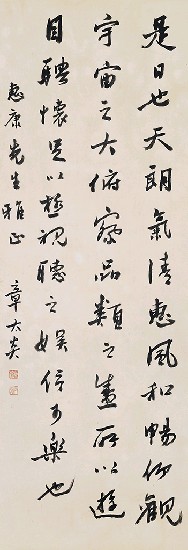 是日也天朗氣清惠風和暢仰觀
宇宙之大俯察品類之盛所以遊
目騁懷足以極視聽之娛信可樂也
惠康先生雅正
章太炎